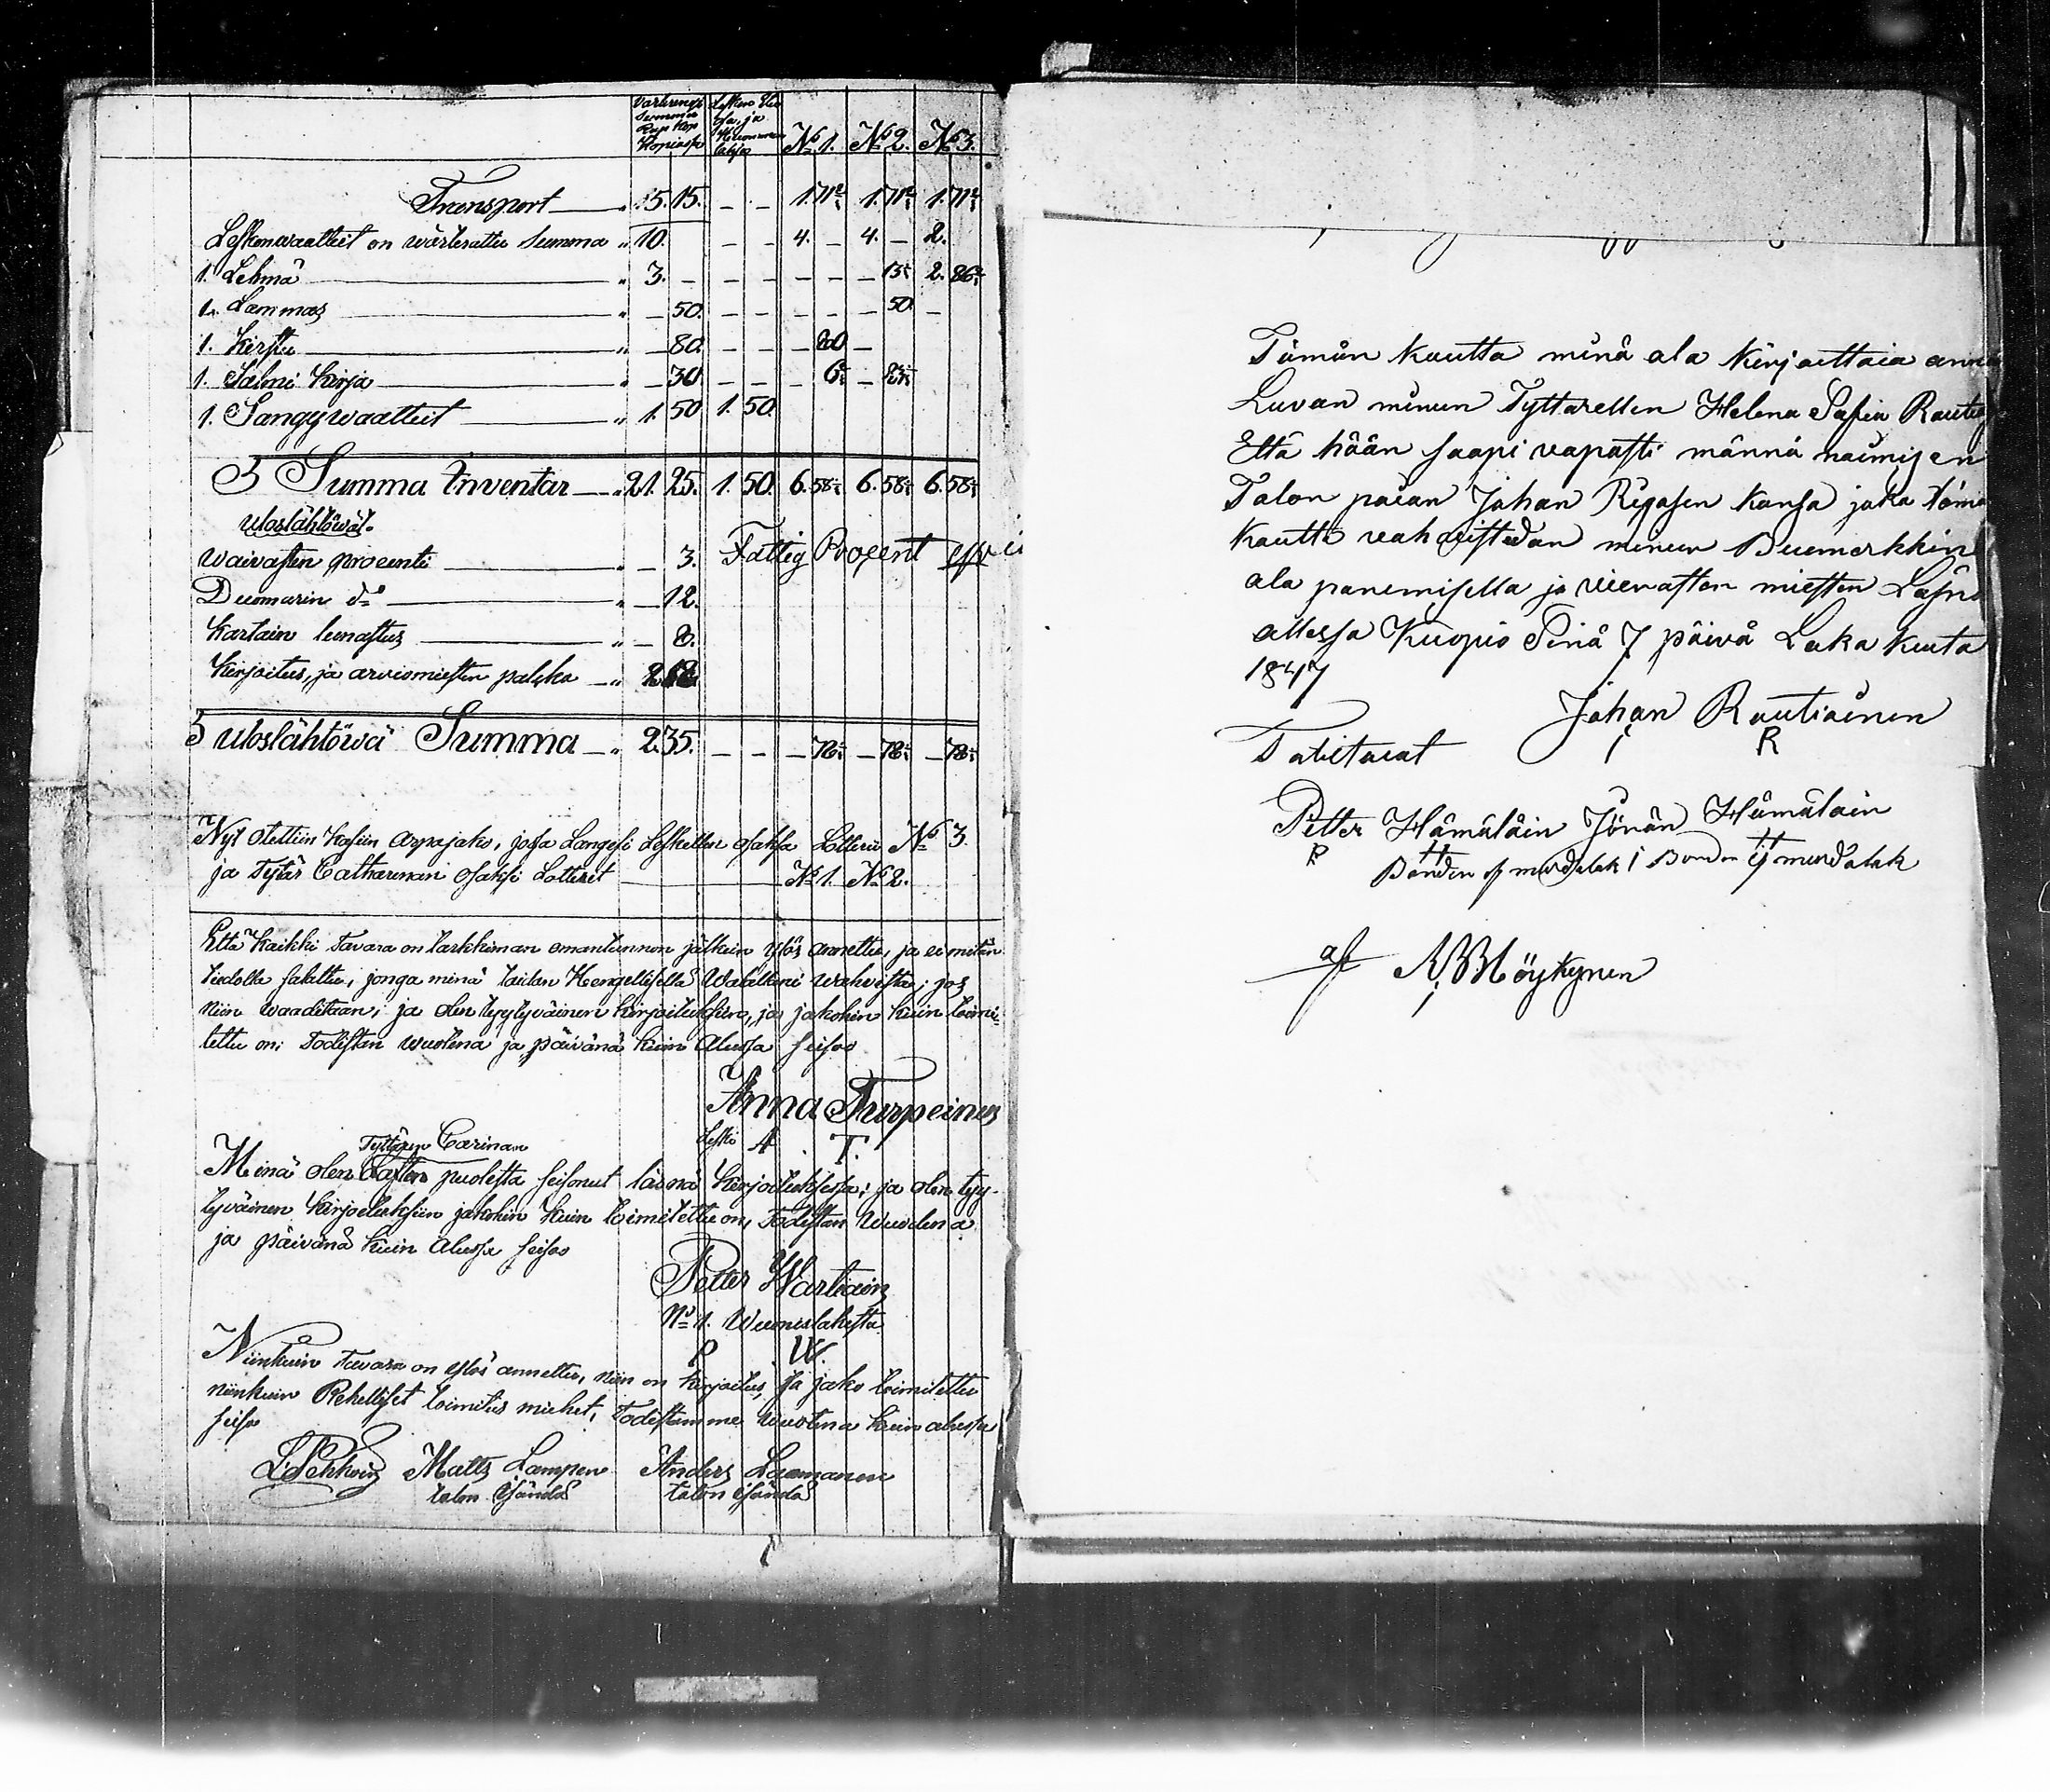 Summa
Kopiassa
No 1. No 2. No 3.
Transport " 5. 15. - - 1. 71 1. 71 1. 71
Leskenwaatteet on wärterattu summa " 10. - - 4. - 4. - 2.
1. Lehmä " 3. - - - - - - 13 2. 86
1. Lammas " - 50. - - - - - 50. -
1. Kirstu " - 80. - - - 80 -
1. Salmi Kirja " - 30. - - - 6 - 23
1. Sängywaatteet " 1. 50 1. 50.
S Summa Inventar " 21. 25. 1. 50. 6. 58 6. 58 6. 58
Uloslähtöwät.
waivasten procenti " - 3. Fattig Procent
Duomarin do " - 12.
Kartain lunastus " - 8.
Kirjoitus, ja arviomiesten palkka "
S uloslähtöwä Summa " 2. 35. - - - 78 - 78 - 78
Nyt otettiin käsiin arpajako, josa Langesi Leskellen osaksi Lotteri No 3.
ja Tytär Catharinan osaksi Lotterit No 1. No 2.
Että Kaikki Tavara on tarkkiman omantunnon jälkein ylös annettu, ja ei mitän
tiedolla salattu, jonga minä taidan Hengellisellä Walallani wahvista; jos
niin waaditaan; ja olen tyytyväinen kirjoituksiin, ja jakohin kuin toimi-
tettu on; Todistan wuotena ja päivänä kuin Alussa seisoo
Anna Turpeinen
Leski A. T.
Tyttären Carinan
Minä olen Lasten puolesta seisonut läsnä kirjoituksessa; ja olen tyy-
tyväinen kirjoituksiin jakohin kuin toimitettu on, Todistan wuodena
ja päivänä kuin Alussa seisoo
Petter Wartiain
No 1. Wuorislahesta
P. W.
Niinkuin tavara on ylös annettu, niin on kirjoitus, ja jako toimitettu
niinkuin Rehelliset toimitus miehet, Todistamme wuotena kuin alussa
seisoo
Matts Lampen Anders Laamanen
talon isändä talon isändä
Tämän kautta minä ala kirjoittaia anna
Luvan minun Tyttarellen Helena Safia Rauti
Että hään saapi vapasti männä naimisen
Talon poian Johan Rigasen kansa joka täma
kautta vahvistedan minun Buumerkkin
ala panemisella ja vierasten miesten Läsnä
ollessa Kuopio Sinä 7 päivä Loka kuuta
1847
Johan Rautiainen
J R
Todistavat
Petter Hämäläin Jöran Hämäläin
P H J H
Bonden ifr mundalak Bonden if mundalak
af Möykynen